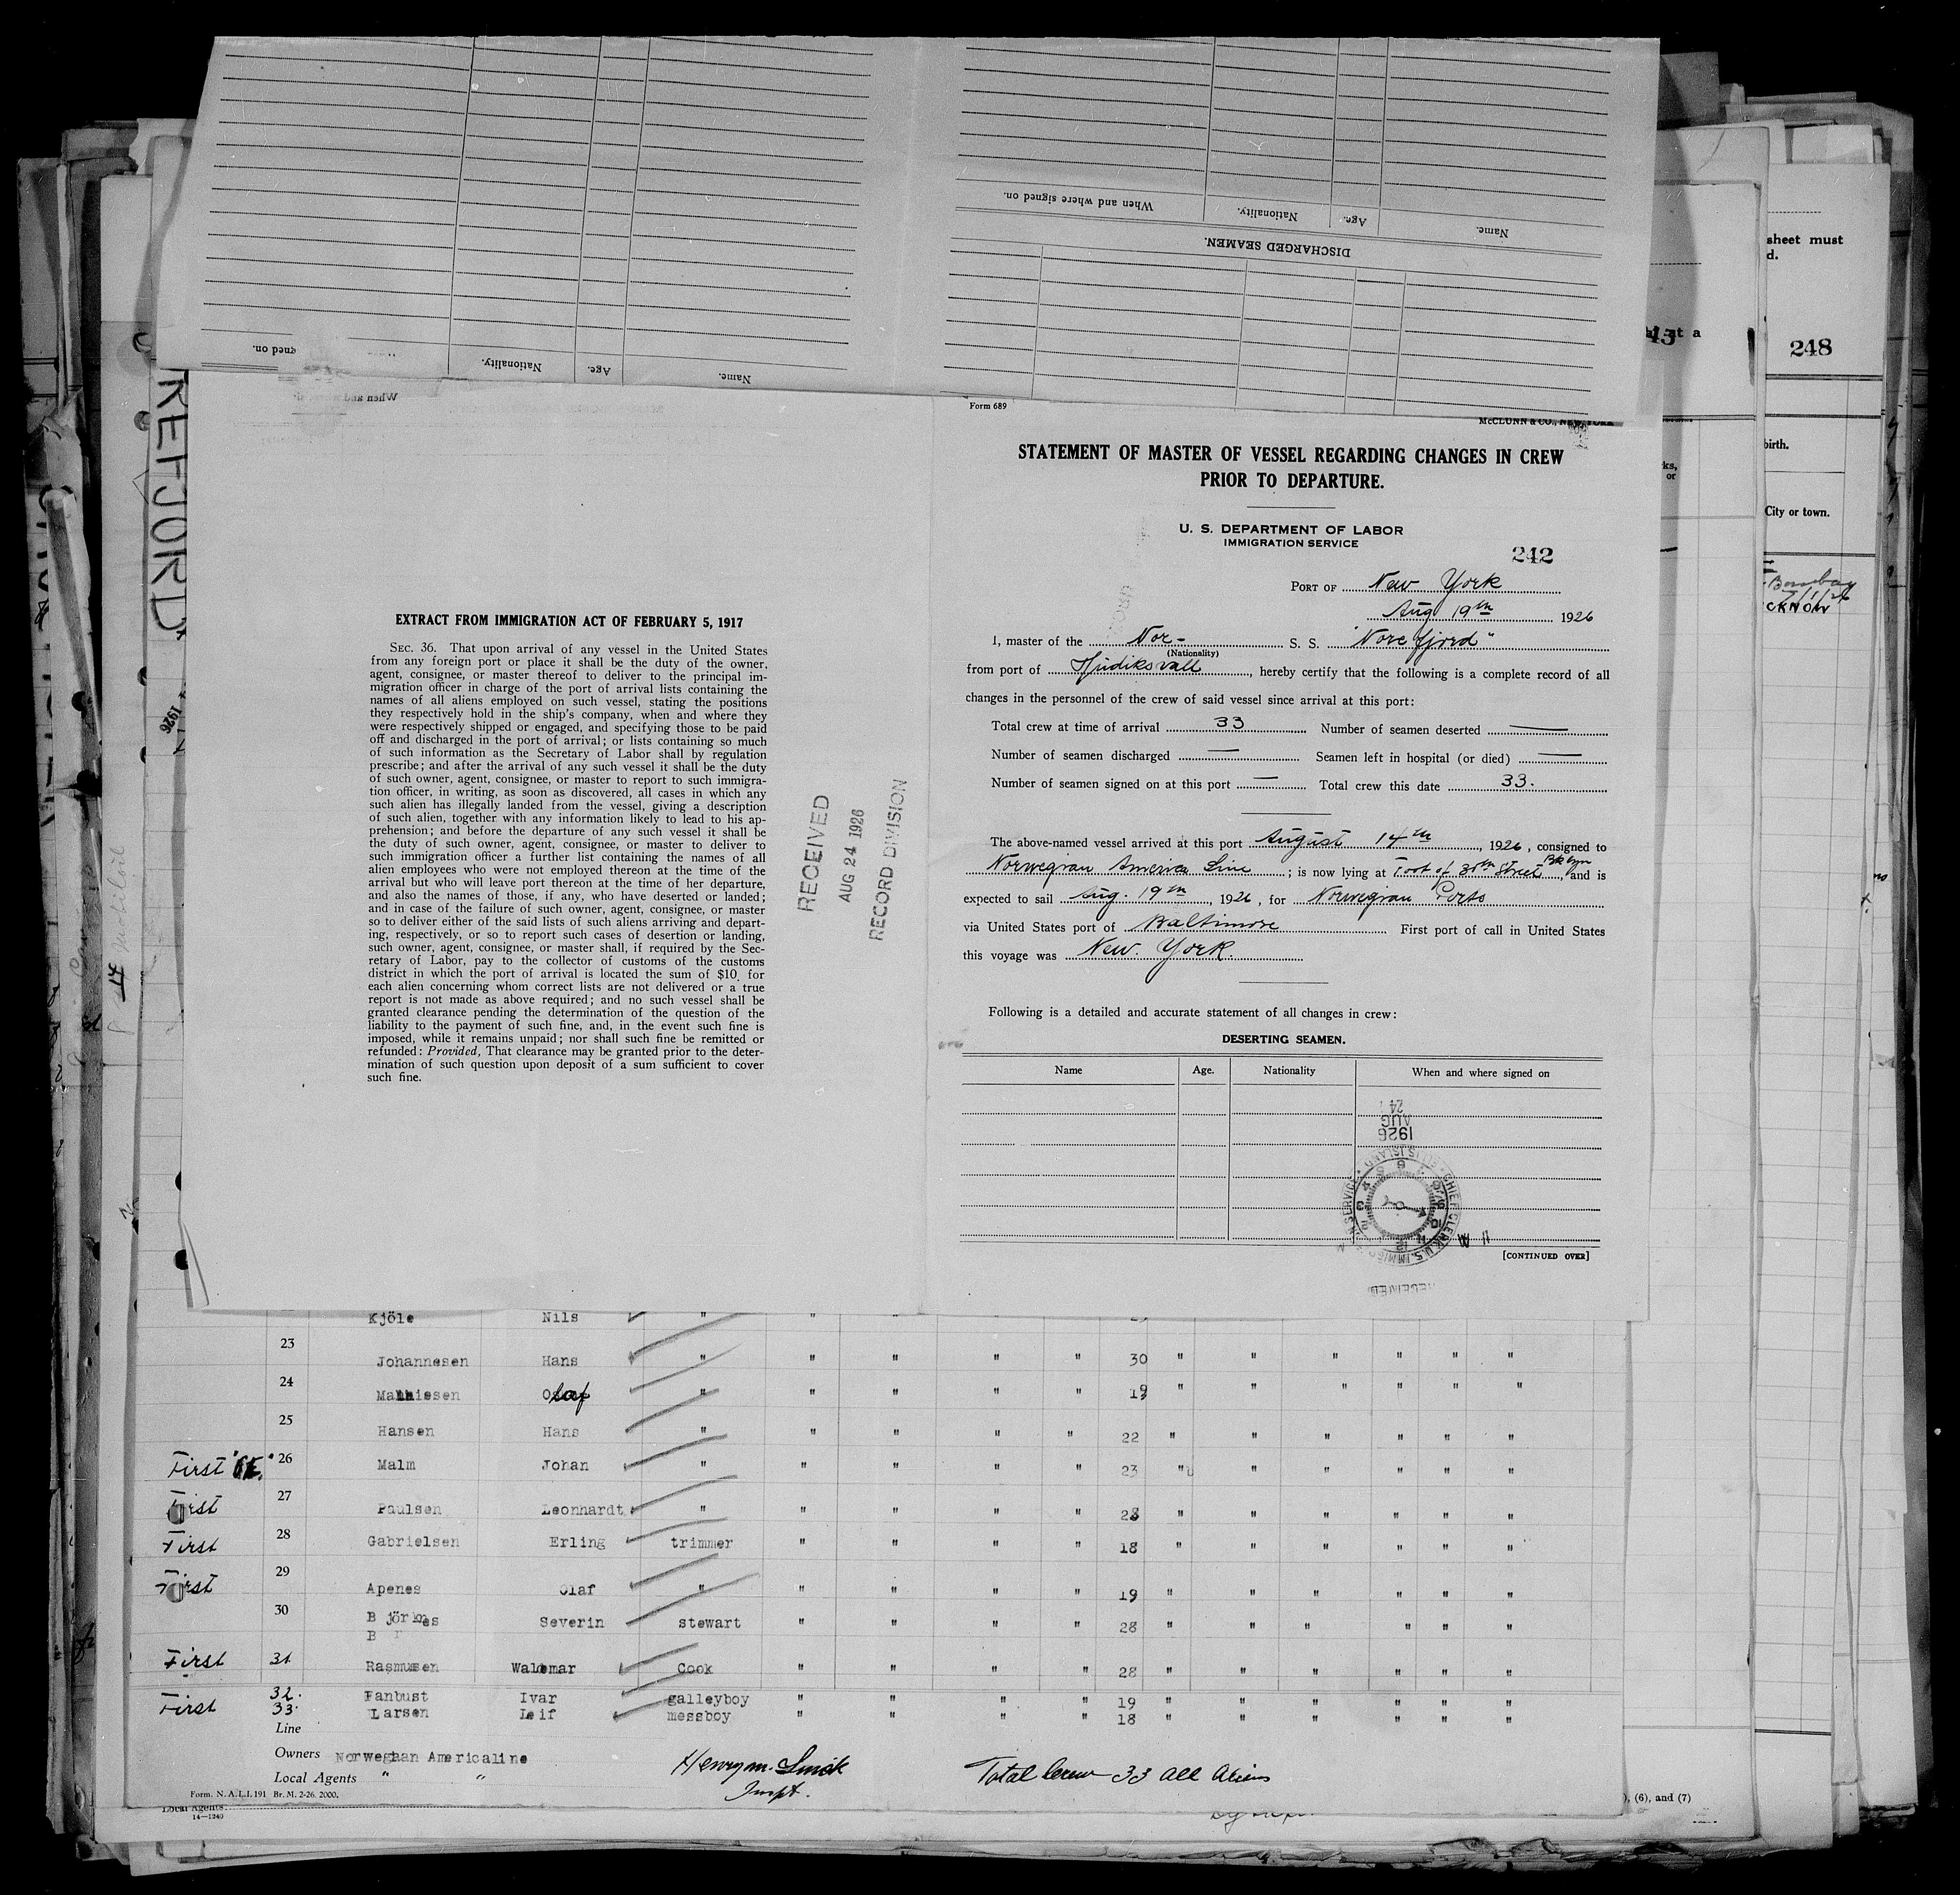 When and where signed on.
Nationality.
Age.
Name.
DISCHARGED SEAMEN.
gned on.
Nationality.
Age.
Name.
When and
Form 689
McCLUNN & CO., NEW YORK
STATEMENT OF MASTER OF VESSEL REGARDING CHANGES IN CREW
PRIOR TO DEPARTURE.
U. S. DEPARTMENT OF LABOR
IMMIGRATION SERVICE
242
PORT OF New York
Aug 19th 1926
I, master of the Nor- S. S. "Norefjord"
(Nationality)
from port of Hudiksvall, hereby certify that the following is a complete record of all
changes in the personnel of the crew of said vessel since arrival at this port:
Total crew at time of arrival 33 Number of seamen deserted —
Number of seamen discharged — Seamen left in hospital (or died) —
Number of seamen signed on at this port — Total crew this date 33.
The above-named vessel arrived at this port August 14th, 1926, consigned to
Norwegian America Line; is now lying at Foot of 30th Street Bklyn, and is
expected to sail Aug. 19th, 1926, for Norwegian Ports
via United States port of Baltimore First port of call in United States
this voyage was New. York.
Following is a detailed and accurate statement of all changes in crew:
DESERTING SEAMEN.
Name Age. Nationality When and where signed on
AUG 24 1926
[CONTINUED OVER]
EXTRACT FROM IMMIGRATION ACT OF FEBRUARY 5, 1917
SEC. 36. That upon arrival of any vessel in the United States
from any foreign port or place it shall be the duty of the owner,
agent, consignee, or master thereof to deliver to the principal im-
migration officer in charge of the port of arrival lists containing the
names of all aliens employed on such vessel, stating the positions
they respectively hold in the ship's company, when and where they
were respectively shipped or engaged, and specifying those to be paid
off and discharged in the port of arrival; or lists containing so much
of such information as the Secretary of Labor shall by regulation
prescribe; and after the arrival of any such vessel it shall be the duty
of such owner, agent, consignee, or master to report to such immigra-
tion officer, in writing, as soon as discovered, all cases in which any
such alien has illegally landed from the vessel, giving a description
of such alien, together with any information likely to lead to his ap-
prehension; and before the departure of any such vessel it shall be
the duty of such owner, agent, consignee, or master to deliver to
such immigration officer a further list containing the names of all
alien employees who were not employed thereon at the time of the
arrival but who will leave port thereon at the time of her departure,
and also the names of those, if any, who have deserted or landed;
and in case of the failure of such owner, agent, consignee, or master
so to deliver either of the said lists of such aliens arriving and depart-
ing, respectively, or so to report such cases of desertion or landing,
such owner, agent, consignee, or master shall, if required by the Sec-
retary of Labor, pay to the collector of customs of the customs
district in which the port of arrival is located the sum of $10 for
each alien concerning whom correct lists are not delivered or a true
report is not made as above required; and no such vessel shall be
granted clearance pending the determination of the question of the
liability to the payment of such fine, and, in the event such fine is
imposed, while it remains unpaid; nor shall such fine be remitted or
refunded: Provided, That clearance may be granted prior to the deter-
mination of such question upon deposit of a sum sufficient to cover
such fine.
RECEIVED
AUG 24 1926
RECORD DIVISION
REFJORD
1926
sheet must
d.
at a
248
birth.
City or town.
Bombay
CKNOW
Kjöle Nils " " " " "
23 Johannesen Hans " " " " " 30 " " " " " "
24 Mathiesen Olaf " " " " " 19 " " " " " "
25 Hansen Hans " " " " " 22 " " " " " "
First 26 Malm Johan " " " " " 23 " " " " " "
First 27 Paulsen Leonhardt " " " " " 28 " " " " " "
First 28 Gabrielsen Erling trimmer " " " " 18 " " " " " "
First 29 Apenes Olaf " " " " " 19 " " " " " "
30 Björknes Severin stewart " " " " 28 " " " " " "
First 31 Rasmussen Waldemar Cook " " " " 28 " " " " " "
32. Fanbust Ivar galleyboy " " " " 19 " " " " " "
First 33. Larsen Leif messboy " " " " 18 " " " " " "
Line
Owners Norweghan Americaline
Local Agents " "
Henry M. Smick
Inspt.
Total Crew 33 all aliens
Form. N. A. L. I. 191 Br. M. 2-26. 2000.
Local Agents
14—1240
), (6), and (7)